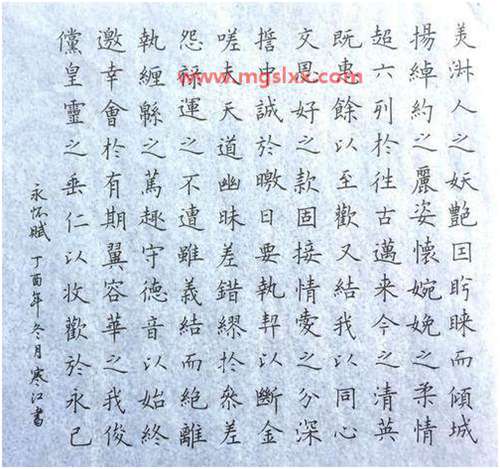 美淑人之妖艷囙盻睞而傾城
揚綽約之麗姿懷婉娩之柔情
超六列於往古邁來今之清英
既惠餘以至歡又結我以同心
交恩好之款固接情愛之分深
誓中誠於曒日要執契以斷金
嗟夫天道幽昧差錯繆於參差
怨祿運之不遭雖義結而絕離
執纏緜之篤趣守德音以始終
邀幸會於有期翼容華之我俊
儻皇靈之垂仁以收歡於永已
永怀賦 丁酉年冬月寒江書
www.mgslxx.com